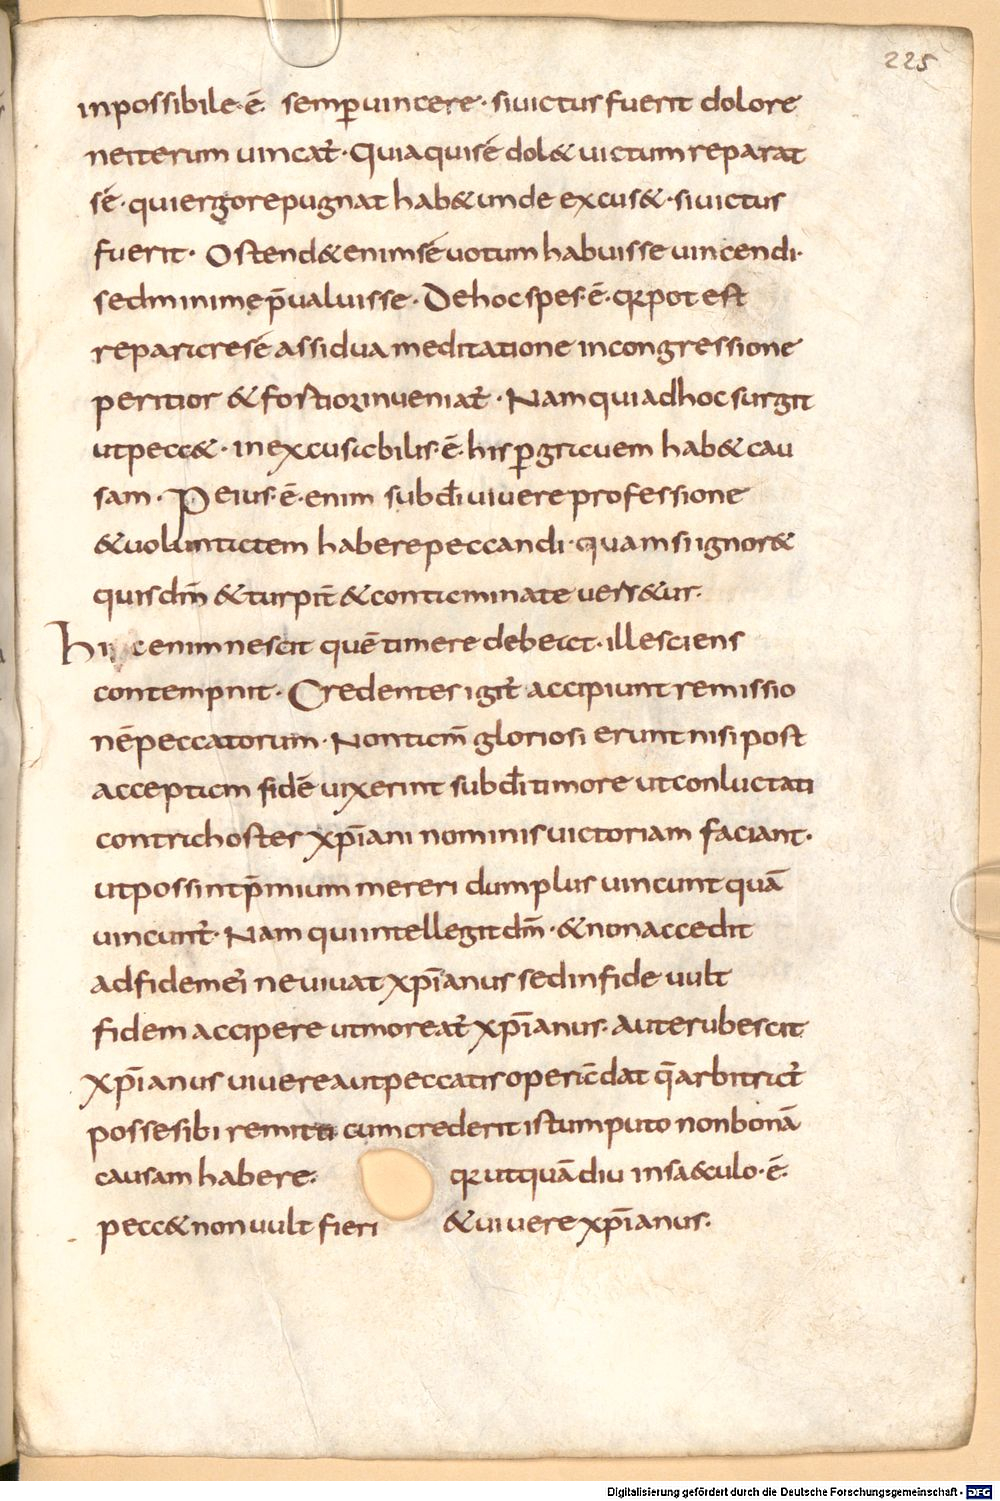 225
inpossibile·ē· semꝑ uincere· si uictus fuerit dolore
ne iterum uincat᷑· Quia qui sé dol& uictum reparat
sé· qui ergo repugnat hab& unde excus&· si uictus
fuerit· Ostend& enim sé uotum habuisse uincendi·
sed minime p̄ualuisse· De hoc spes·ē· qꝛ potest
reparare sé assidua meditatione in congressione
peritior & fortior inueniat᷑· Nam qui ad hoc surgit
ut pecc&· inexcusabilis·ē· his ꝑ grauem hab& cau
sam· Peius·ē· enim sub dī uiuere professione
& uoluntatem habere peccandi· quam si ignor&
quis dm̄ & turpit᷑ & contaminate uers&ur·
Hic enim nescit quē timere debeat· ille sciens
contempnit· Credentes igit᷑ accipiunt remissio
nē peccatorum· Non tam̄ gloriosi erunt nisi post
acceptam fidē uixerint sub dī timore ut conluctati
contra hostes xp̄iani nominis uictoriam faciant·
ut possint p̄mium mereri dum plus uincunt quā
uincunt᷑· Nam qui intellegit dm̄· & non accedit
ad fidem ei᷑ ne uiuat xp̄ianus sed in fide uult
fidem accipere ut moreat᷑ xp̄ianus· aut erubescit
xp̄ianus uiuere aut peccatis operā dat q̄ arbitrat᷑
posse sibi remitti cum crederit istum puto non bonā
causam habere· qꝛ ut quādiu in sa&culo·ē·
pecc& non uult fieri & uiuere xp̄ianus·
Digitalisierung gefördert durch die Deutsche Forschungsgemeinschaft - DFG